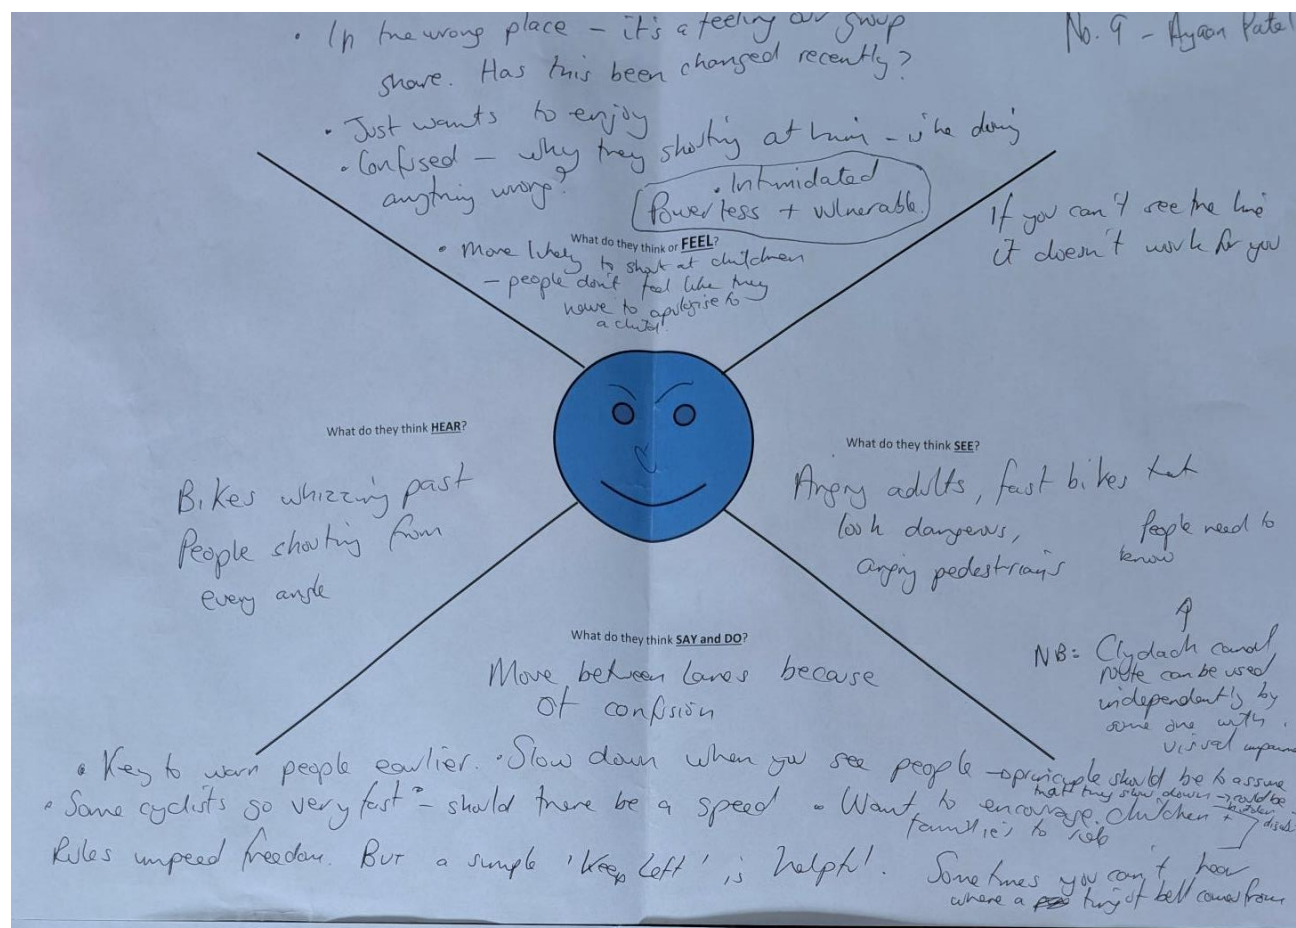 No. 9 - Ayaan Patel
• In the wrong place - it's a feeling our group
share. Has this been changed recently?
• Just wants to enjoy
• Confused - why they shouting at him - is he doing
anything wrong?
• Intimidated
Powerless + vulnerable.
What do they think or FEEL?
• More likely to shout at children
- people don't feel like they
have to apologise to
a child!
If you can't see the line
it doesn't work for you
What do they think HEAR?
Bikes whizzing past
People shouting from
every angle
What do they think SEE?
Angry adults, fast bikes that
look dangerous,
angry pedestrians
People need to
know
NB: Clydach canal
route can be used
independently by
some one with
visual
What do they think SAY and DO?
Move between lanes because
of confusion
• Key to warn people earlier. • Slow down when you see people → principle should be to assume
that they slow down → could be
hidden
• Some cyclists go very fast - should there be a speed
• Want to encourage children +
families to
Rules impeed freedom. But a simple 'Keep Left' is helpful.
Sometimes you can't hear
where a ting of bell comes from